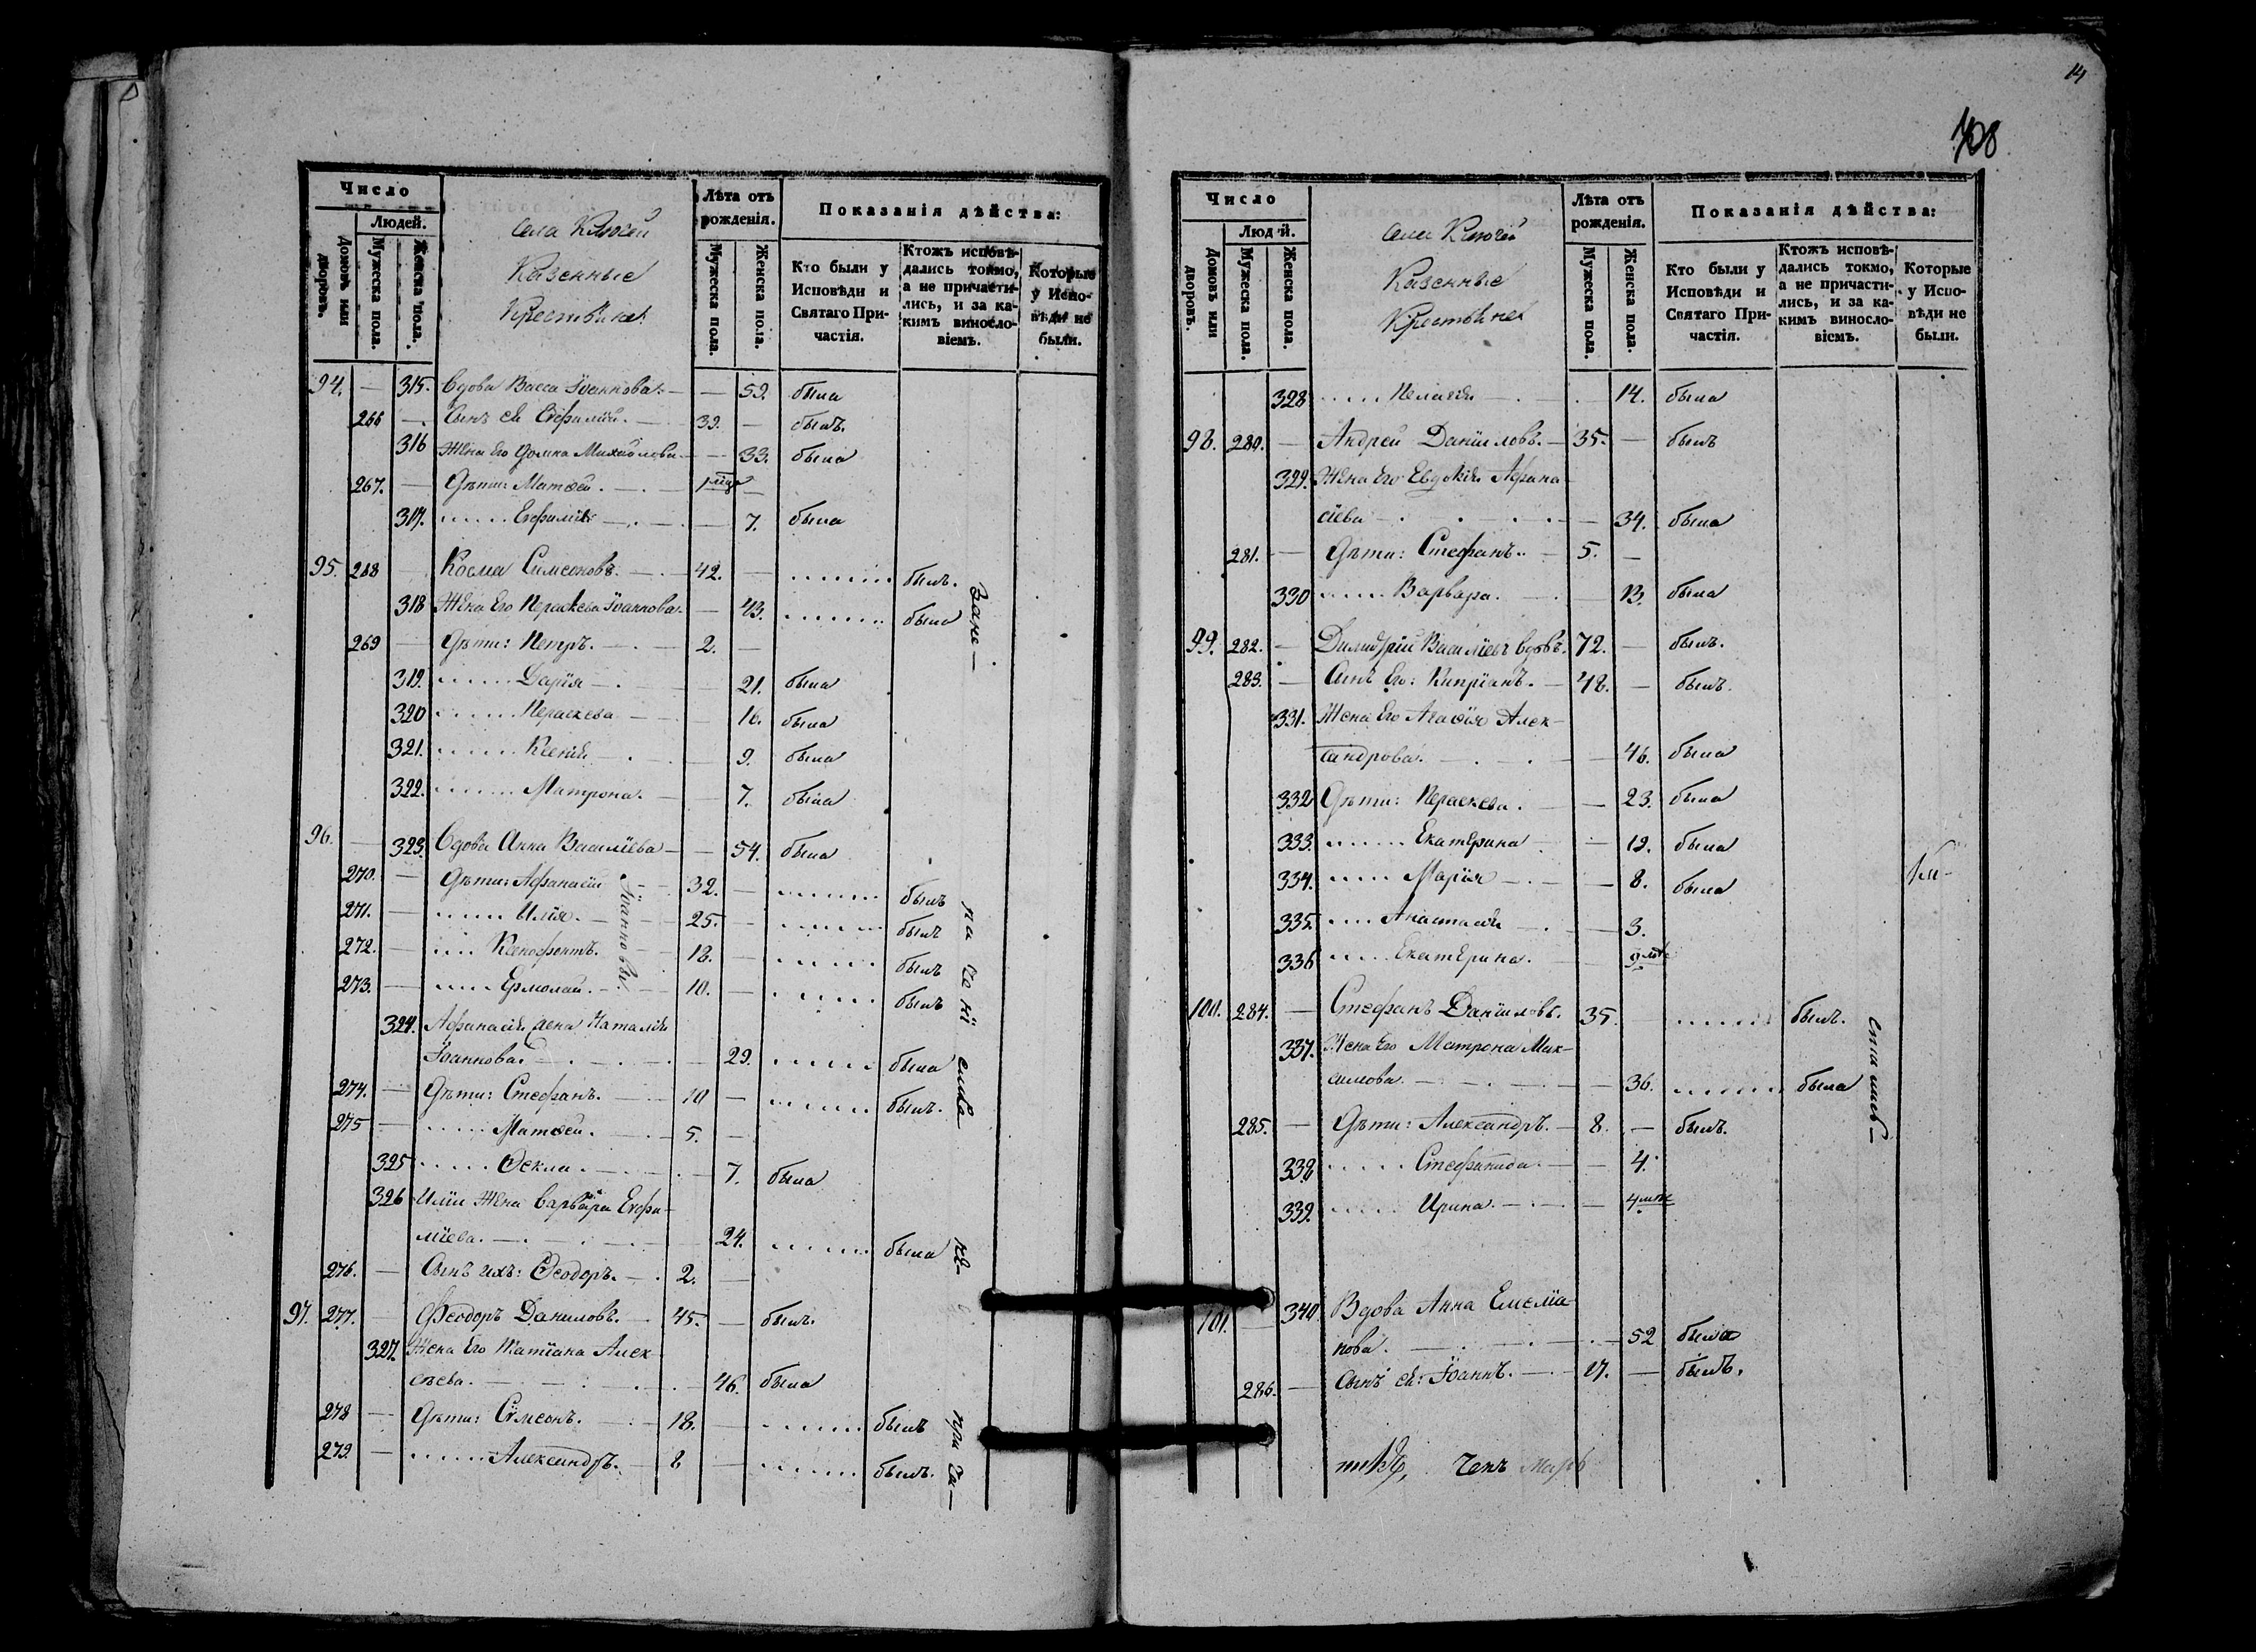 14
708
Число
Людей.
Домовъ или дворовъ.
Мужеска пола.
Женска пола.
Села Ключей
Казенные
Крестьяне
Лѣта отъ рожденія.
Мужеска пола.
Женска пола.
Показанія дѣйства:
Кто были у Исповѣди и Святаго Причастія.
Ктожъ исповѣдались токмо, а не причастились, и за какимъ винословіемъ.
Которые у Исповѣди не были.
94. — 315. Вдова Васса Іоаннова. — — 59. была
266 — Сынъ ея Евфимій. — 39. — былъ.
316 Жена его Домна Михайлова — — 33. была
267. — Дѣти: Матѳей. — 1 мцъ —
317. Евфимія — — 7. была
95. 268 Косма Симеоновъ. — 42. — былъ.
318 Жена его Параскева Іоаннова. — 43. была
269 — Дѣти: Петръ. — 2. —
319. Дарія — 21. была
320 Параскева — 16. была
321. Ксенія — 9. была
322. Матрона. — 7. была
96. — 323. Вдова Анна Василіева — — 54. была
270. — Дѣти: Афанасій — 32. — былъ
271. — Илія. — 25. — былъ
272. — Ксенофонтъ. — 18. — былъ
273. — Ермолай. — 10. — былъ
Іоанновы
324. Афанасія жена Наталія
Іоаннова. — 29. была
274. — Дѣти: Стефанъ. — 10 — былъ.
275 — Матѳей. — 5. —
325 Ѳекла. — 7. была
326 Иліи жена Варвара Евфи-
міева. — 24. была
276. — Сынъ ихъ: Ѳеодоръ. — 2. —
97. 277. — Феодоръ Даниловъ. — 45. — былъ.
327. Жена его Татіана Алек-
сѣева. — 46. была
278 — Дѣти: Сѵмеонъ. — 18. — былъ
279. — Александръ. — 8 — былъ.
Число
Людей.
Домовъ или дворовъ.
Мужеска пола.
Женска пола.
Села Ключей
Казенные
Крестьяне
Лѣта отъ рожденія.
Мужеска пола.
Женска пола.
Показанія дѣйства:
Кто были у Исповѣди и Святаго Причастія.
Ктожъ исповѣдались токмо, а не причастились, и за какимъ винословіемъ.
Которые у Исповѣди не были.
328 Пелагія — 14. была
98. 280. — Андрей Даніиловъ. — 35. — былъ
329. Жена его Евдокія Афана-
сіева — 34. была
281. — Дѣти: Стефанъ. — 5. —
330 Варвара. — 13. была
99. 282. — Димитрій Василіевъ вдовъ. 72. — былъ.
283. — Сынъ его: Кипріанъ. — 48. — былъ.
331. Жена его Агафія Алек-
сандрова. — 46. была
332 Дѣти: Параскева. — 23. была
333. Екатерина — 19. была
334. Марія — 8. была
335. Анастасія — 3.
336 Екатерина. —
100. 284. — Стефанъ Даніиловъ. 35. былъ.
337. Жена его Матрона Мак-
симова. — 36. была
285. — Дѣти: Александръ. — 8. — былъ.
338 Стефанида. — 4.
339. Ирина. —
101. — 340. Вдова Анна Емеліа-
нова. — 52 была
286. — Сынъ ея: Іоаннъ. — 17. — былъ.